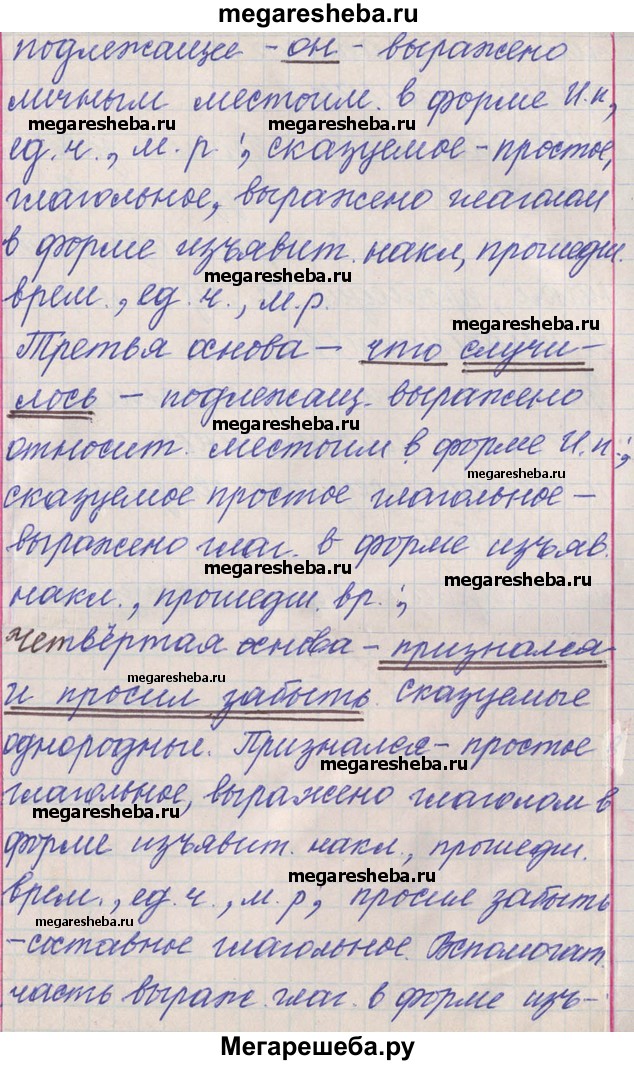 megaresheba.ru
подлежащее - он - выражено
личным местоим. в форме И.п,
megaresheba.ru megaresheba.ru
ед.ч., м.р.; сказуемое - простое,
глагольное, выражено глаголом
в форме изъявит. накл, прошедш.
megaresheba.ru
врем., ед.ч., м.р.
megaresheba.ru
Третья основа - что случи-
лось - подлежащ. выражено
megaresheba.ru
относит. местоим в форме И.п.;
megaresheba.ru
сказуемое простое глагольное -
выражено глаг. в форме изъяв.
megaresheba.ru
megaresheba.ru
накл., прошедш. вр.;
четвёртая основа - признался
megaresheba.ru
и просил забыть. Сказуемые
однородные. Признался - простое
глагольное, выражено глаголом в
megaresheba.ru
форме изъявит. накл., прошедш.
megaresheba.ru
врем., ед.ч., м.р, просил забыть
megaresheba.ru
- составное глагольное. Вспомогат.
часть выраж. глаг. в форме изъ-
Мегарешеба.ру